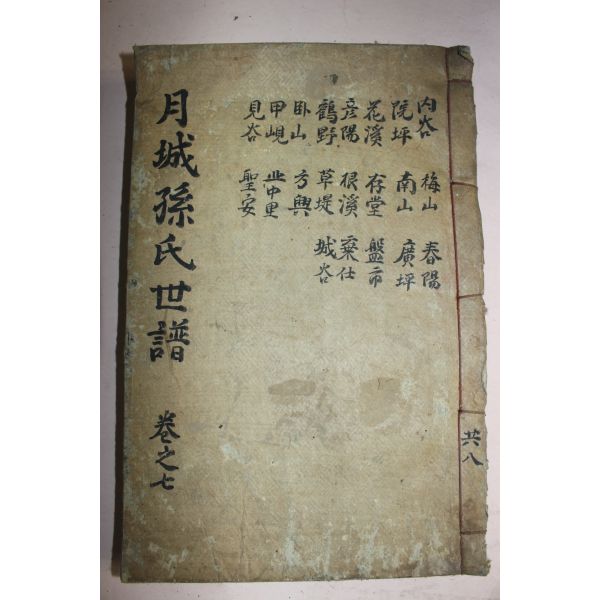 共八
內谷 梅山 春陽
院坪 南山 廣坪
花溪 存堂 盤市
彦陽 根溪 棄仕
鶴野 草堤 城谷
卧山 方興
甲峴 中里
見谷 聖安
月城孫氏世譜 卷之七